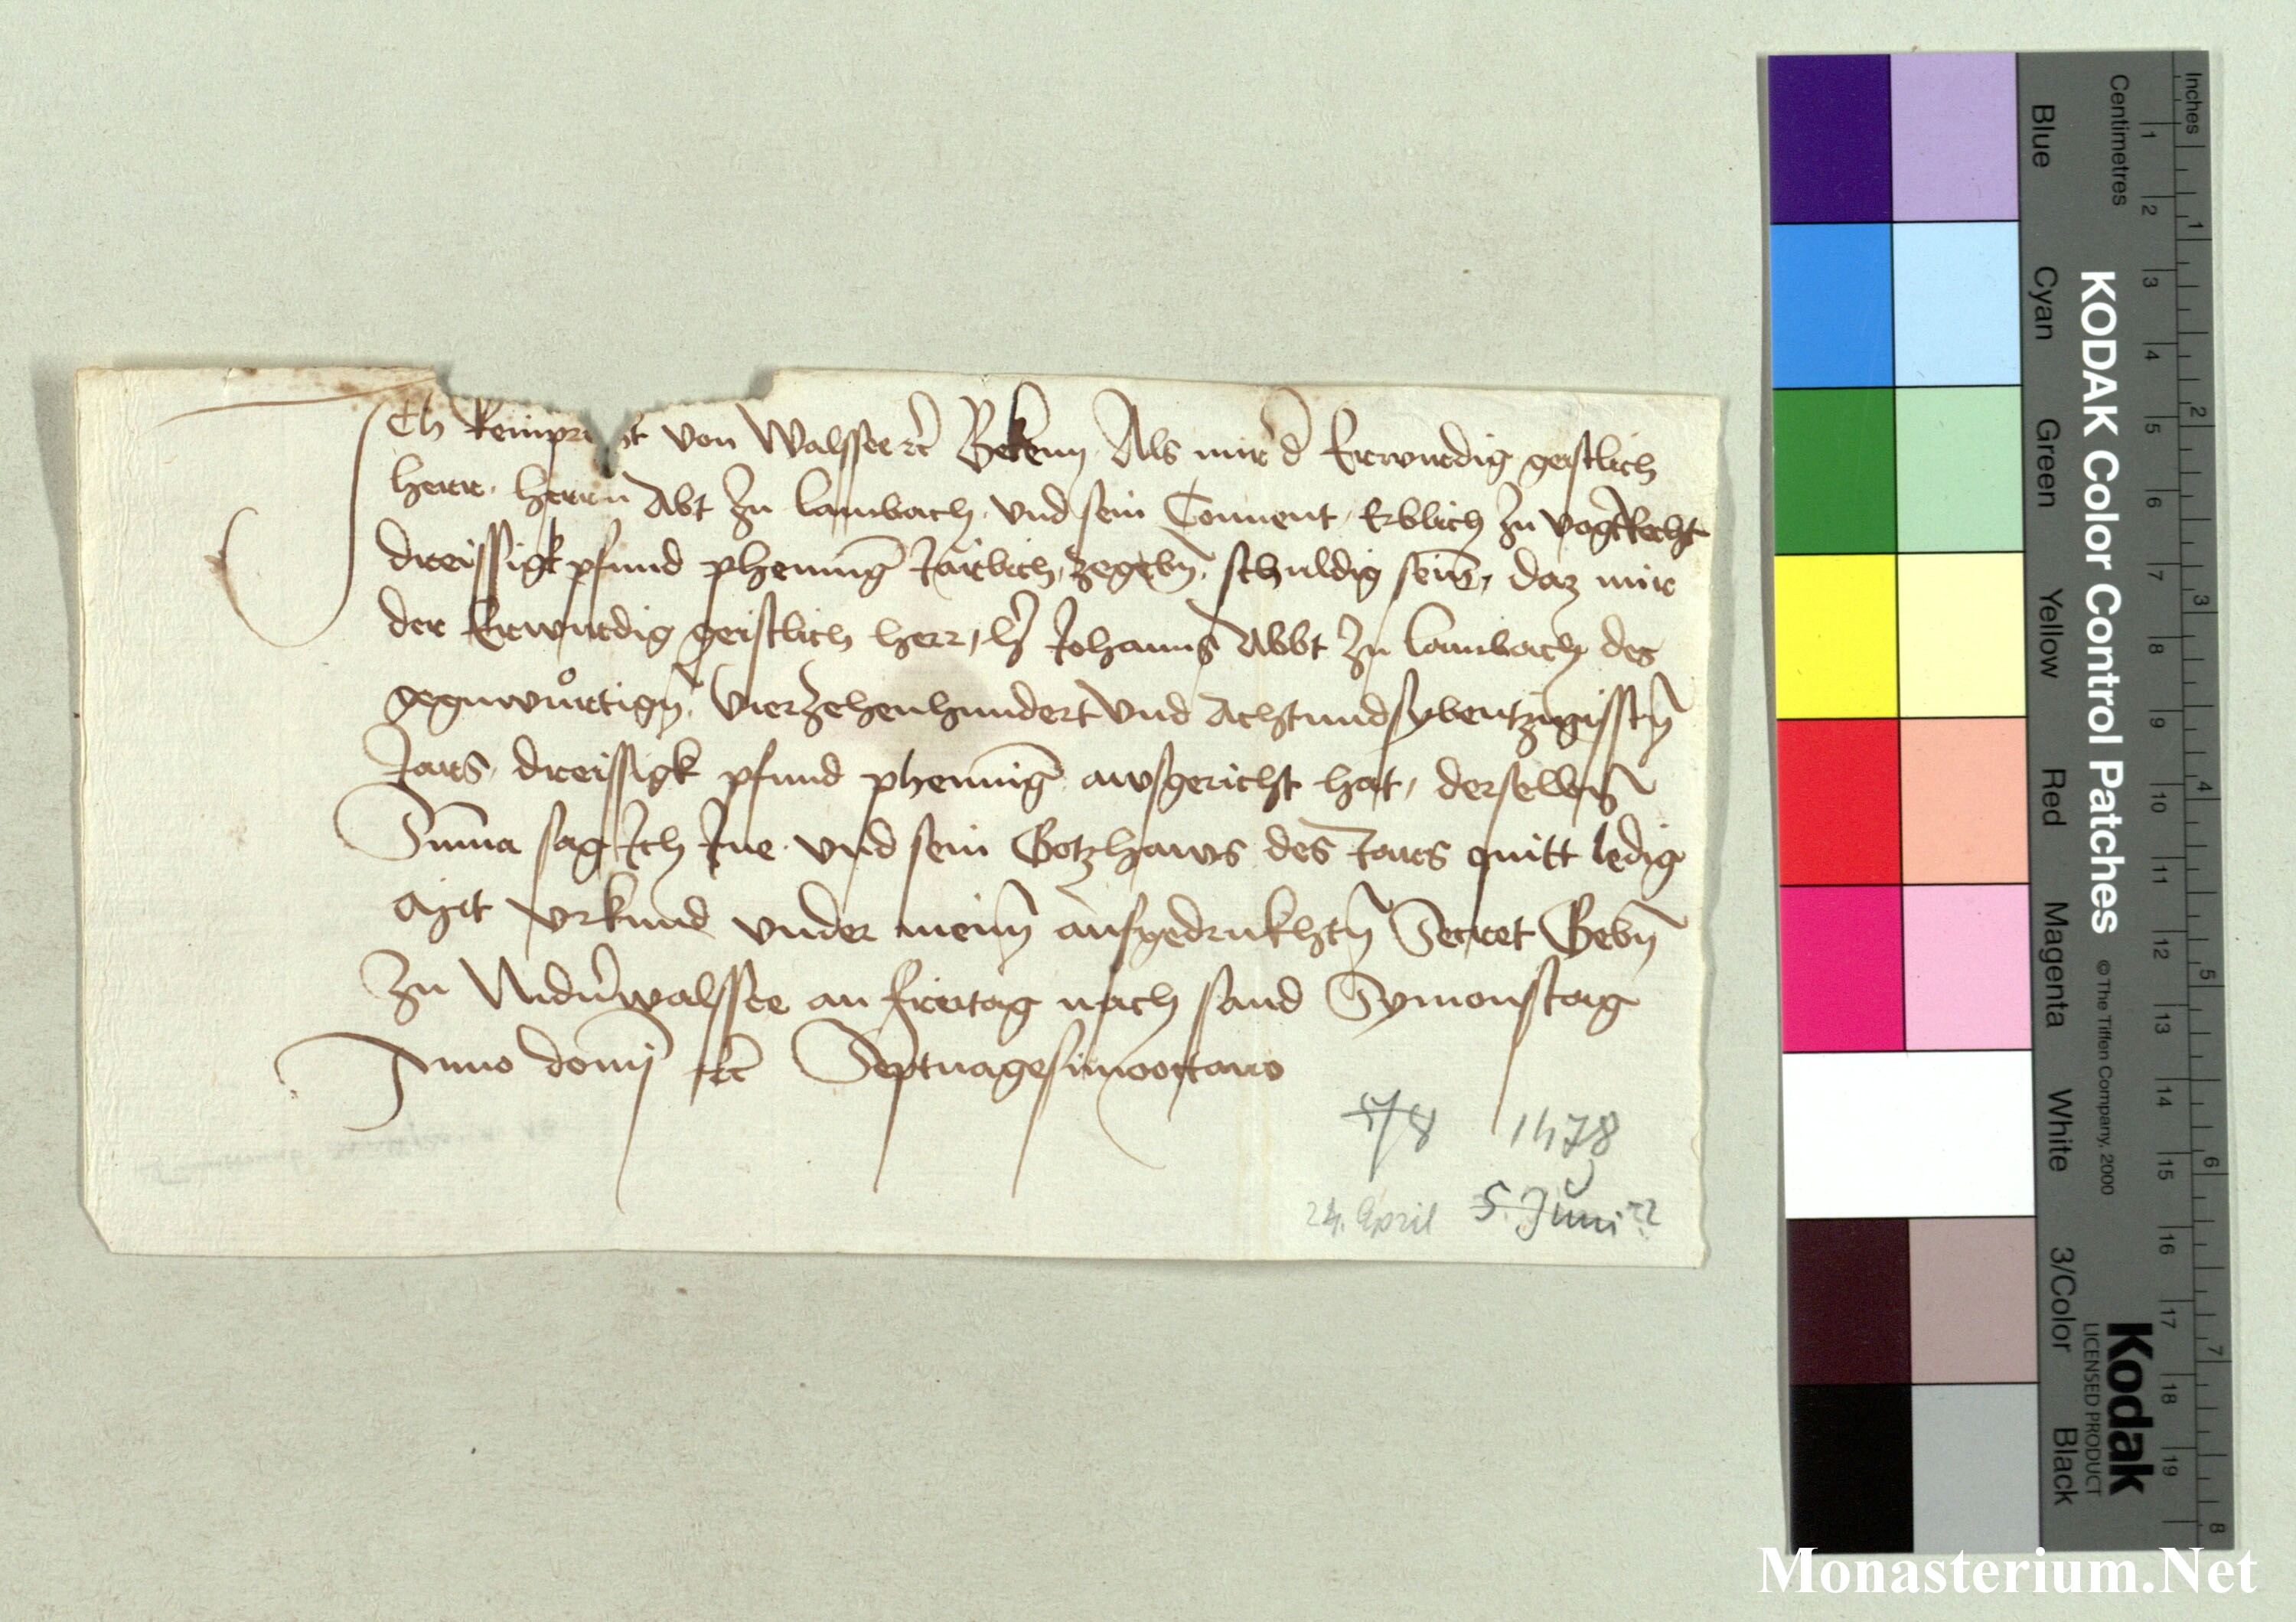 Ich Reinprecht von Walssee etc Bekenn Als mir d Erwirdig geistlich
herr herrn Abt zu lambach vnd sein Conuent Erblich zu vogtrecht
dreissigk pfund phenning Järlich zegebn schuldig sein, daz mir
der Erwirdig geistlich herr, h Johanns Abbt zu lambach des
gegnwürtign vierzehenhundert vnd Achtundsybentzigisstn
Jars dreissigk pfund phenning awsgericht hat, derselben
Summa sag Ich Ine vnd sein Gotzhaws des Jars quitt ledig
Mit vrkund vnder meinm aufgedrukhtn Secret Gebn
zu Niderwalssee an freitag nach sand Symonstag
Anno domi etc Septuagesimooctauo
478 1478
24. April 5. Juni ??
Inches
Centimetres
1 2 3 4 5 6 7 8
1 2 3 4 5 6 7 8 9 10 11 12 13 14 15 16 17 18 19
KODAK Color Control Patches
© The Tiffen Company, 2000
Kodak
LICENSED PRODUCT
Blue
Cyan
Green
Yellow
Red
Magenta
White
3/Color
Black
Monasterium.Net